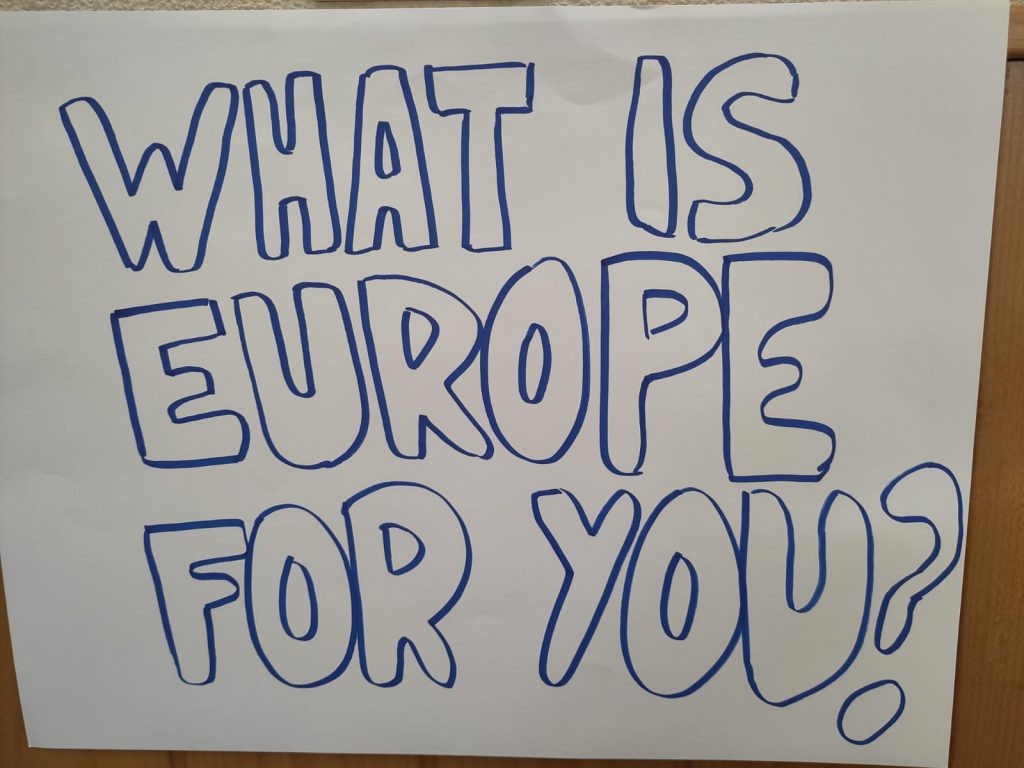 WHAT IS
EUROPE
FOR YOU?